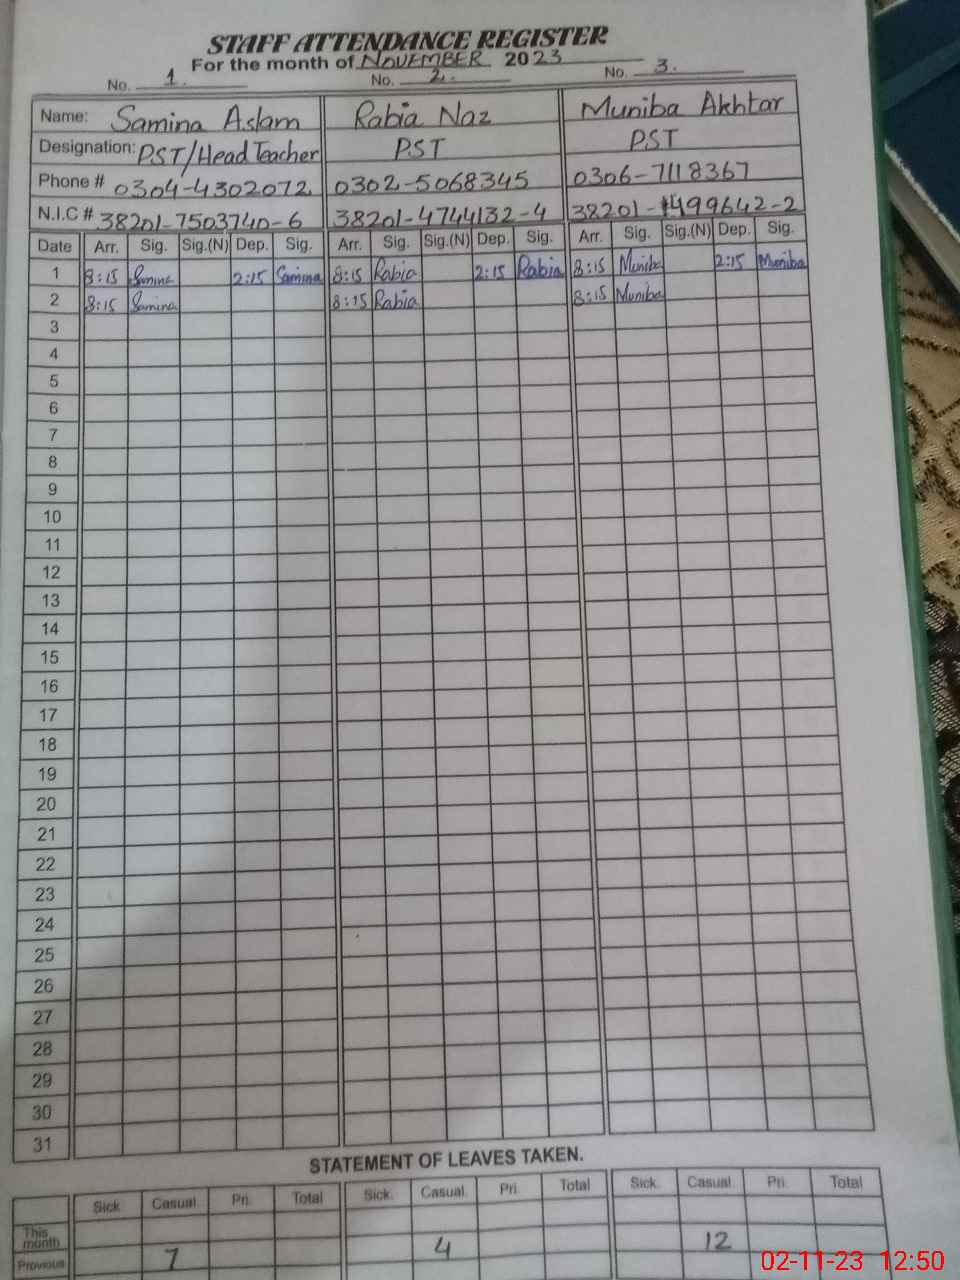 STAFF ATTENDANCE REGISTER
For the month of NOVEMBER 2023
No. 1. No. 2. No. 3.
Name: Samina Aslam Rabia Naz Muniba Akhtar
Designation: PST/Head Teacher PST PST
Phone # 0304-4302072 0302-5068345 0306-7118367
N.I.C # 38201-7503740-6 38201-4744132-4 38201-1499642-2
Date Arr. Sig. Sig.(N) Dep. Sig. Arr. Sig. Sig.(N) Dep. Sig. Arr. Sig. Sig.(N) Dep. Sig.
1 8:15 Samina 2:15 Samina 8:15 Rabia 2:15 Rabia 8:15 Muniba 2:15 Muniba
2 8:15 Samina 8:15 Rabia 8:15 Muniba
3
4
5
6
7
8
9
10
11
12
13
14
15
16
17
18
19
20
21
22
23
24
25
26
27
28
29
30
31
STATEMENT OF LEAVES TAKEN.
Sick. Casual. Pri. Total Sick. Casual. Pri. Total Sick. Casual. Pri. Total
This month
Previous 7 4 12
02-11-23 12:50